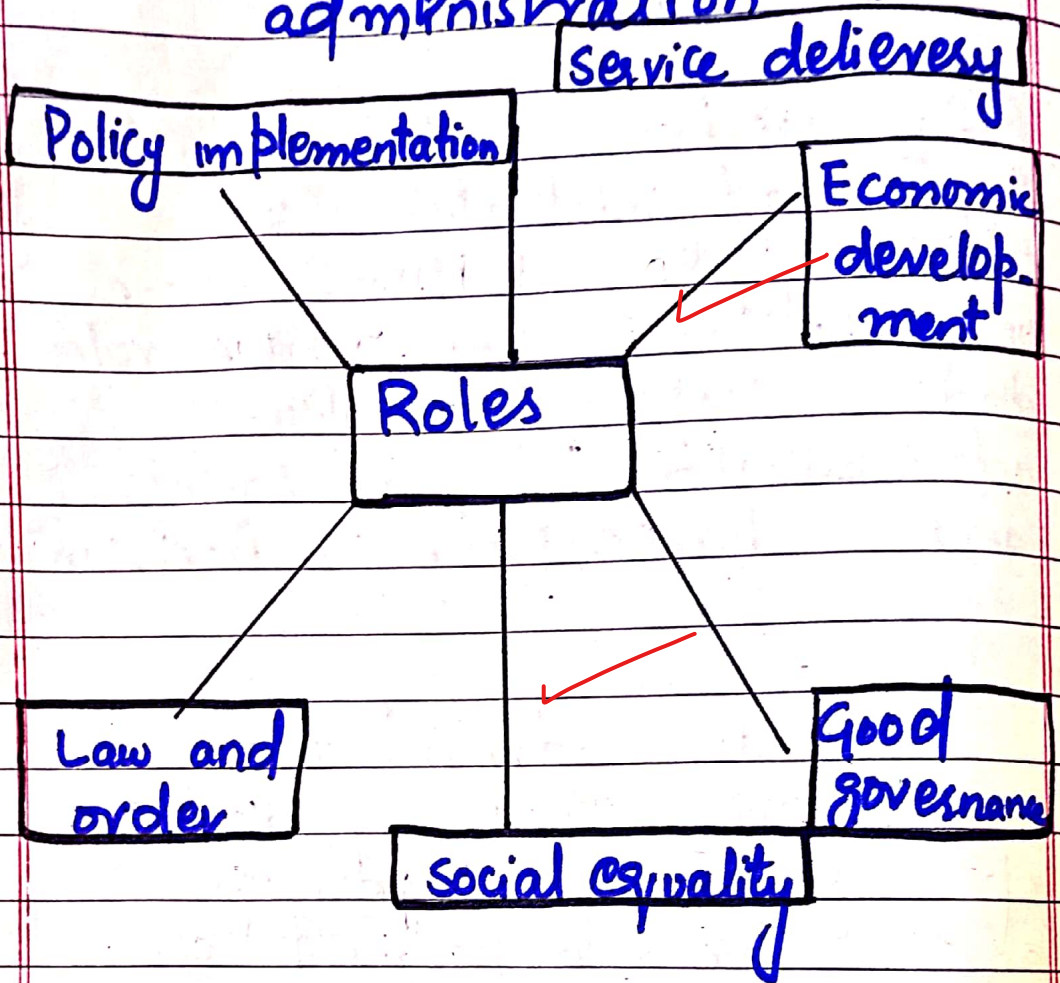 administration
Service delievery
Policy implementation
Economic
develop-
ment
Roles
Law and
order
Good
governance
social equality